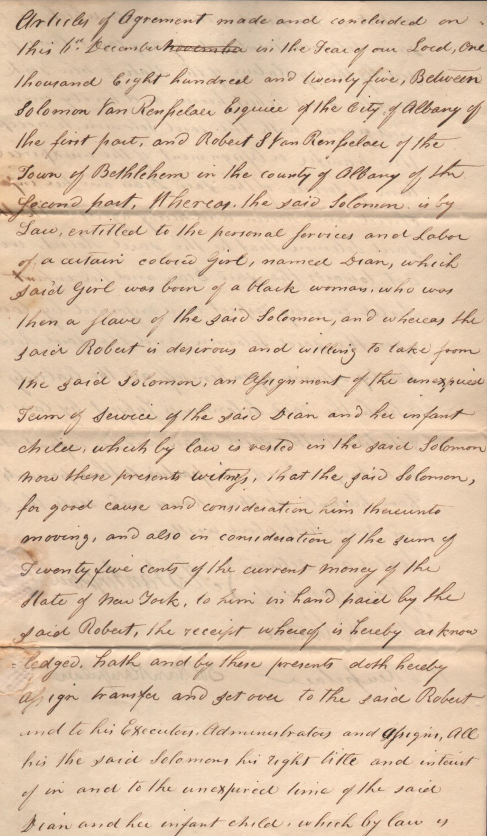 Articles of Agrement made and concluded on
this 6th December november in the Year of our Lord, One
thousand Eight hundred and twenty five, Between
Solomon Van Rensselaer Esquire of the City of Albany of
the first part, and Robert S Van Rensselaer of the
Town of Bethlehem in the county of Albany of the
Second part, Whereas, the said Solomon is by
Law, entitled to the personal services and Labor
of a certain colored Girl, named Dian, which
said Girl was born of a black woman, who was
then a slave of the said Solomon, and whereas the
said Robert is desirous and willing to take from
the said Solomon, an Assignment of the unexpired
Term of Service of the said Dian and her infant
child, which by law is vested in the said Solomon
Now these presents witness, that the said Solomon,
for good cause and consideration him thereunto
moving, and also in consideration of the sum of
Twenty five cents of the current money of the
State of New York, to him in hand paid by the
said Robert, the receipt whereof is hereby acknow
ledged, hath and by these presents doth hereby
assign transfer and set over to the said Robert
and to his Executors, Administrators and Assigns, All
his the said Solomons his right title and interest
of in and to the unexpired time of the said
Dian and her infant child, which by law is